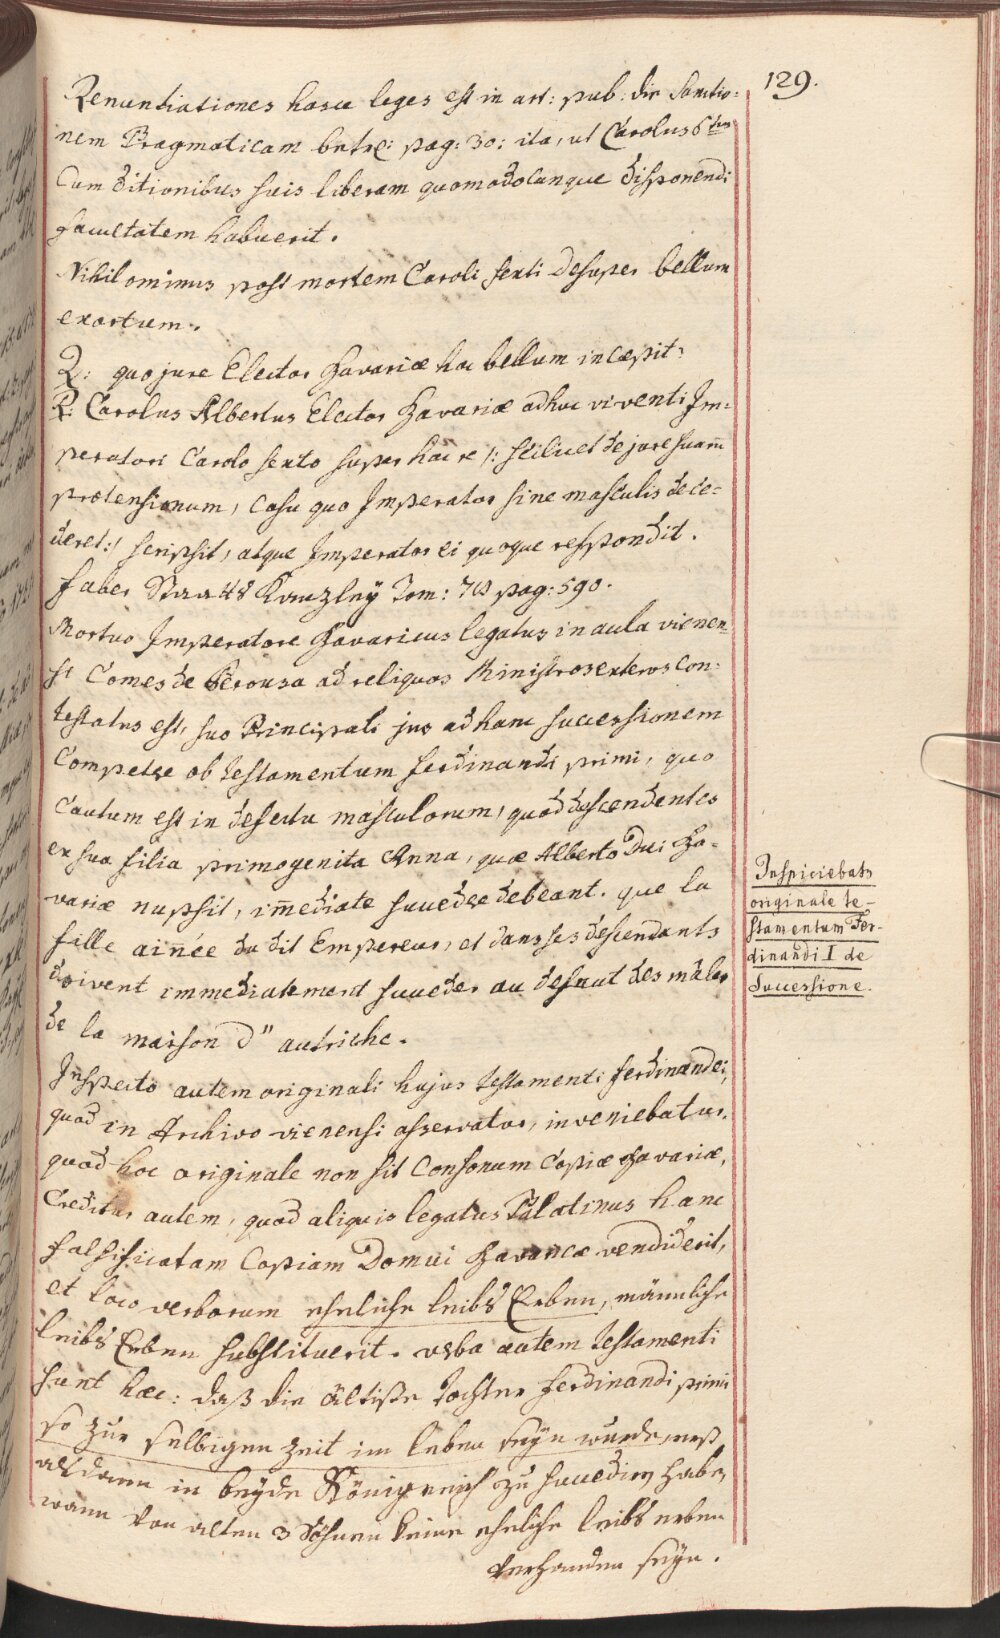 129.
Renuntiationes hasce leges est in art: pub: die Sanctio=
nem Pragmaticam betre: pag: 30: ita, ut Carolus 6tus
Cum ditionibus suis liberam quomodocunque disponendi
facultatem habuerit.
Nihilominus post mortem Caroli sexti desuper bellum
exortum.
Q: quo jure Elector Bavariæ hoc bellum incæpit?
R: Carolus Albertus Elector Bavariæ adhuc viventi Im=
peratori Carolo sexto super hac re /: scilicet de jure suarm̄
prætensionum, casu quo Imperator sine masculis dece=
deret :/ scripsit, atque Imperator ei quoque respondit.
Faber Staats Canzley Tom: 78 pag: 590.
Mortuo Imperatore Bavaricus legatus in aula vienen=
si Comes de Perousa ad reliquos Ministros exteros con=
testatus est, suo Principali jus ad hanc successionem
Competere ob testamentum Ferdinandi primi, quo
Cautum est in defectu masculorum, quod descendentes
ex sua filia primogenita Anna, quæ Alberto Duci Ba=
variæ nupsit, im̄ediate succedere debeant. que la
fille ainée du dit Empereur, et dans ses descendants
doivent immediatement succeder au defaut des mâles
de la maison d" autriche.
Inspiciebatr
originale te=
stamentum Fer=
dinandi I de
Successione.
Inspecto autem originali hujus testamenti Ferdinandei,
quod in Archivo vienensi asservatur, inveniebatur,
quod hoc originale non sit Consonum Copiæ Bavariæ,
Creditur autem, quod aliquis legatus Palatinus hanc
falsificatam Copiam Domui Bavaricæ vendiderit,
et loco verborum eheliche leibs Erben, männliche
leibs Erben substituerit. verba autem testamenti
sunt hæc: daß die ältiste Tochter Ferdinandi primi
so zur selbigen zeit im leben seyn wurde, erst
alsdann in beyde Königreich zu succedirn habe,
wann von allen 3 Söhnen keine eheliche leibs erben
verhanden seyn.